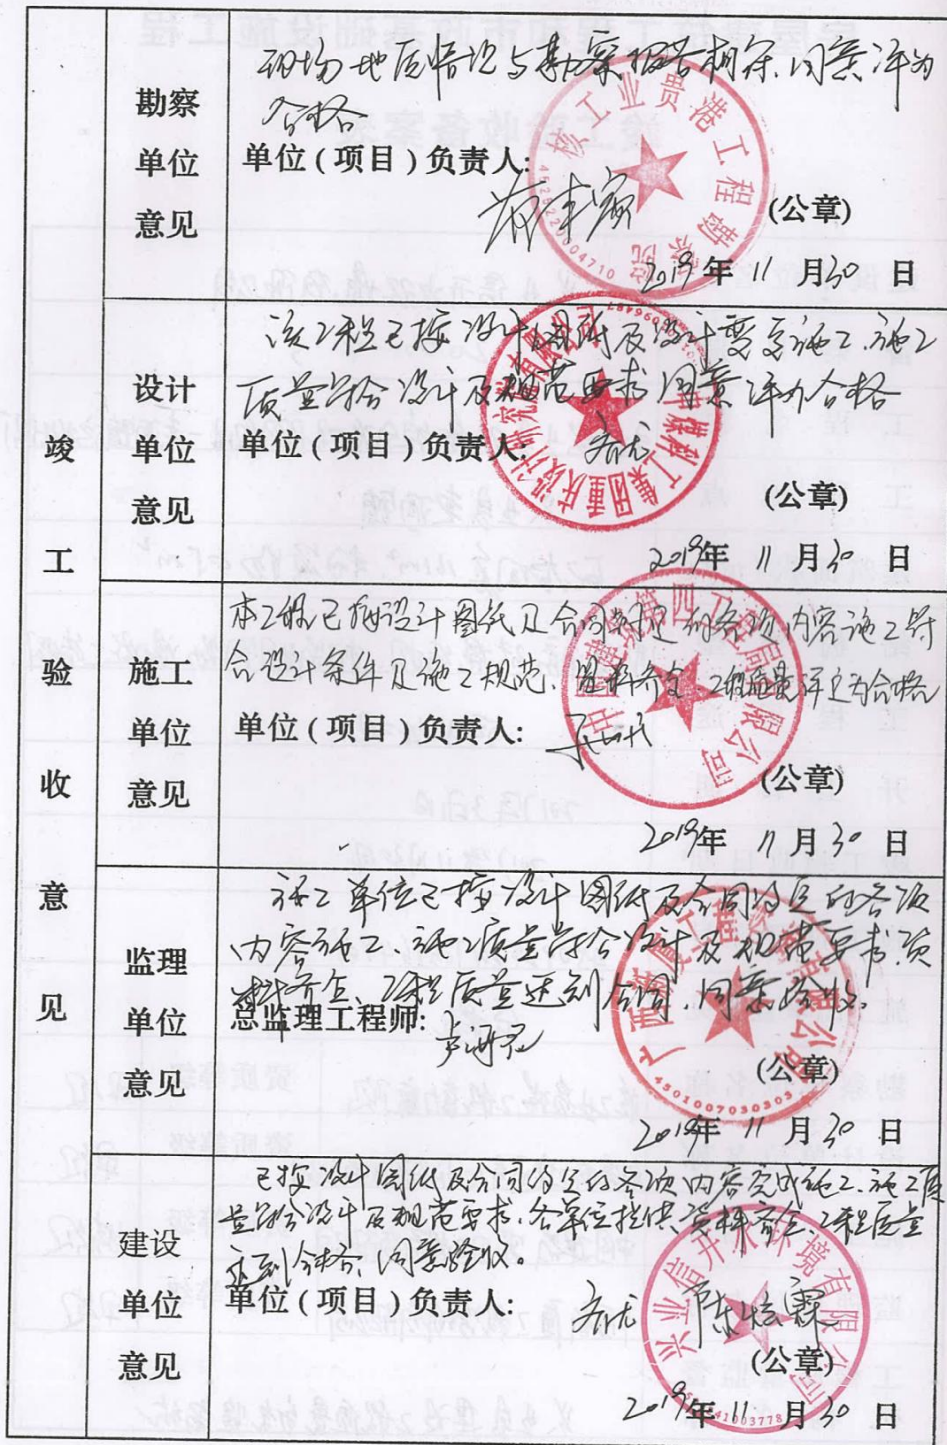 竣工验收意见
勘察单位意见
现场地质情况与勘察报告相符、同意评为
合格
单位(项目)负责人:
核工业贵港工程勘察院
(公章)
2019年11月30日
设计单位意见
该工程已按设计图纸及设计变更施工、施工
质量符合设计及规范要求,同意评为合格
单位(项目)负责人:
集团重庆设计研究院有限公司
(公章)
2019年11月30日
施工单位意见
本工程已按设计图纸及合同约定的各项内容施工符
合设计条件及施工规范、资料齐全、工程质量评定为合格
单位(项目)负责人:
中国建筑第四工程局有限公司
(公章)
2019年11月30日
监理单位意见
施工单位已按设计图纸及合同约定的各项
内容施工、施工质量符合设计及规范要求,资
料齐全、工程质量达到合同、同意验收。
总监理工程师:
(公章)
4501007030303
2019年11月30日
建设单位意见
已按设计图纸及合同约定的各项内容完成施工、施工质
量符合设计及规范要求,各单位提供资料齐全、工程质量
达到合格、同意验收。
单位(项目)负责人:
兴业信开水环境有限公司
(公章)
2019年11月30日